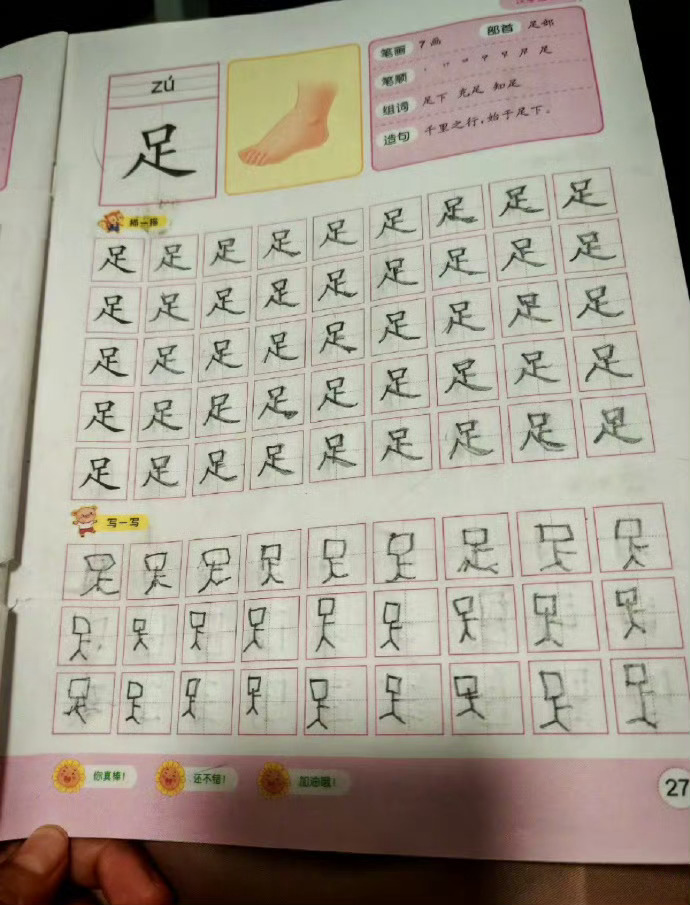 zú
足
笔画 7画 部首 足部
笔顺
组词 足下 充足 知足
造句 千里之行,始于足下。
描一描
足 足 足 足 足 足 足 足 足
足 足 足 足 足 足 足 足 足
足 足 足 足 足 足 足 足 足
足 足 足 足 足 足 足 足 足
足 足 足 足 足 足 足 足 足
写一写
足 足 足 足 足 足 足 足 足
足 足 足 足 足 足 足 足 足
足 足 足 足 足 足 足 足 足
你真棒! 还不错! 加油哦!
27